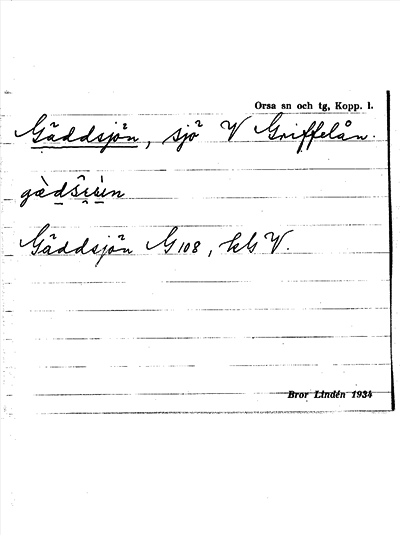 Orsa sn och tg, Kopp. l.
Gäddsjön, sjö V Griffelån.
Gäddsjön G 108, kbl V.
Bror Lindén 1934